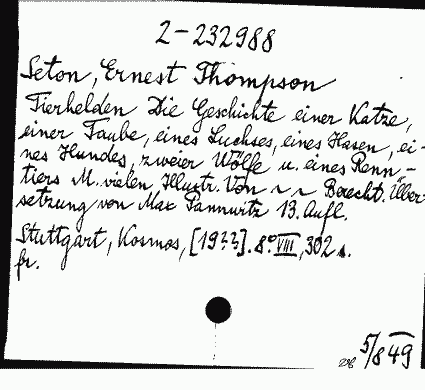 2-232988
Seton, Ernest Thompson
Tierhelden Die Geschichte einer Katze,
einer Taube, eines Luchses, eines Hasen, ei-
nes Hundes, zweier Wölfe u. eines Renn-
tiers M. vielen Illustr. Von ~ ~ Berecht. Über-
setzung von Max Pannwitz 13. Aufl.
Stuttgart, Kosmos, [19??]. 8° VIII, 302 s.
fr.
5/8 49